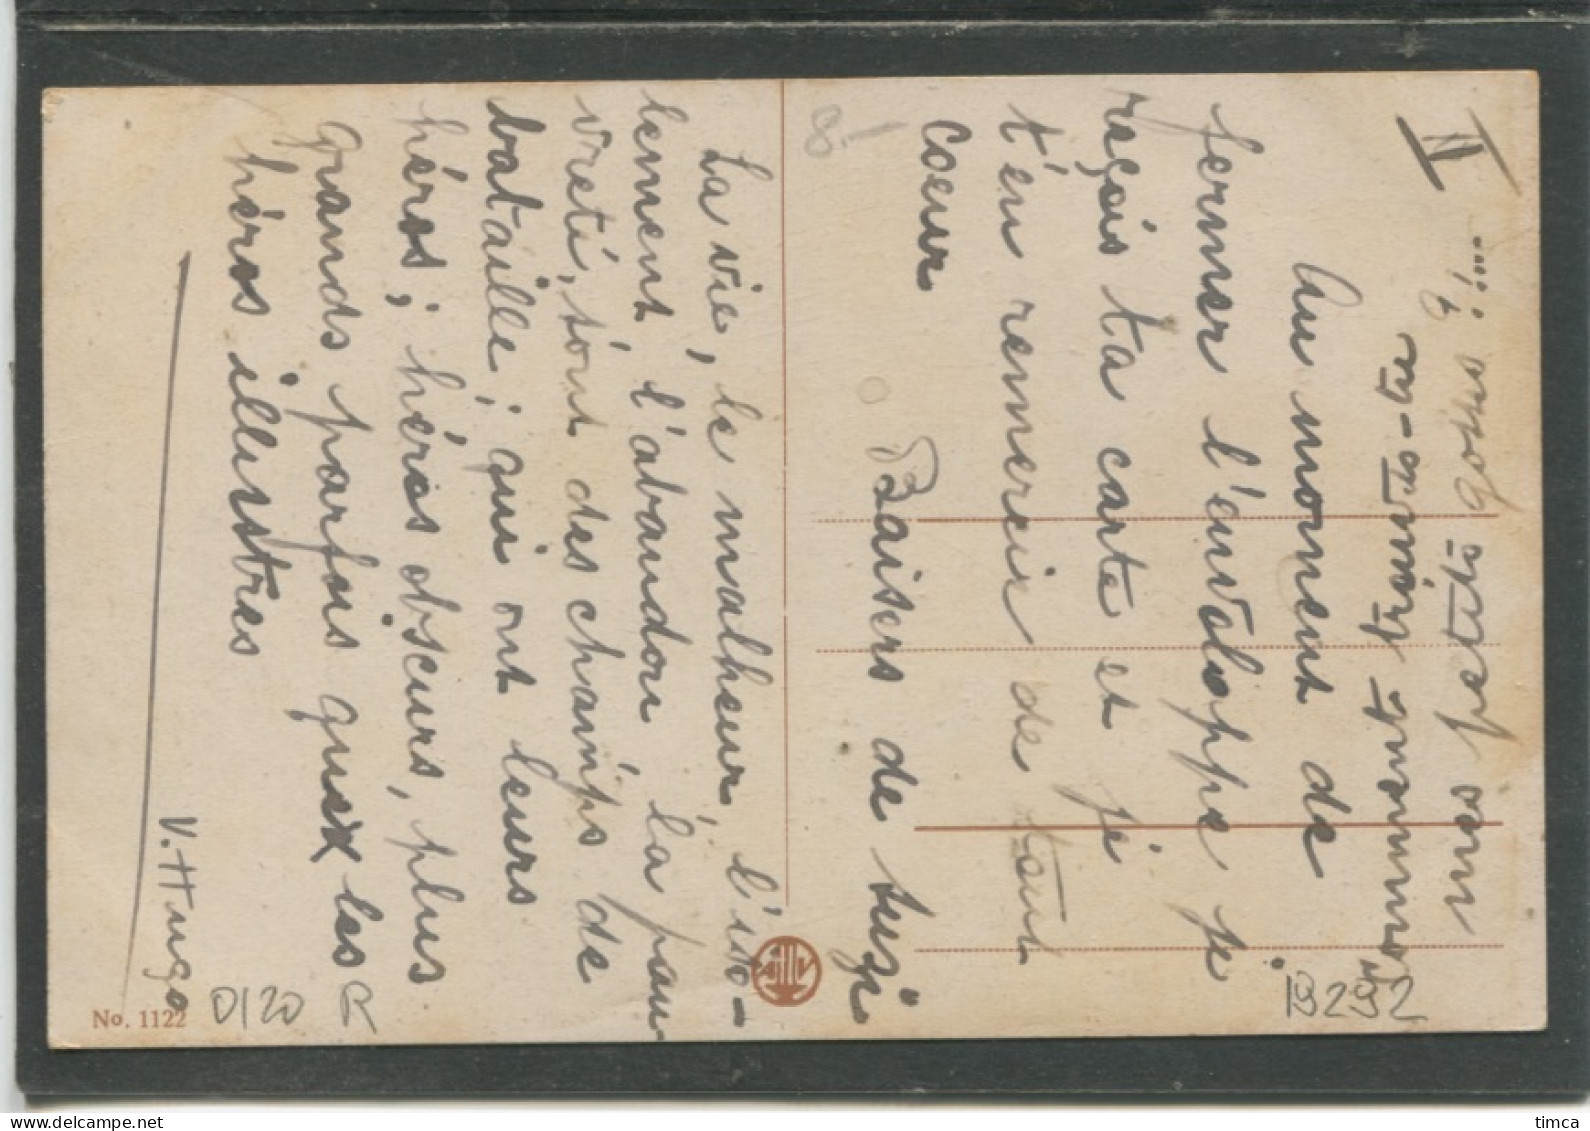 II
Comment trouves-tu
mes petits gosses ?!....
Au moment de
fermer l'enveloppe je
reçois ta carte et je
t'en remercie de tout
coeur
Baisers de
8.-
La vie, le malheur, l'iso-
lement, l'abandon, la pau
vreté, sont des champs de
bataille; qui ont leurs
héros; héros obscurs, plus
grands parfois que les
héros illustres
V. Hugo
No. 1122
0120
R
19292
timca